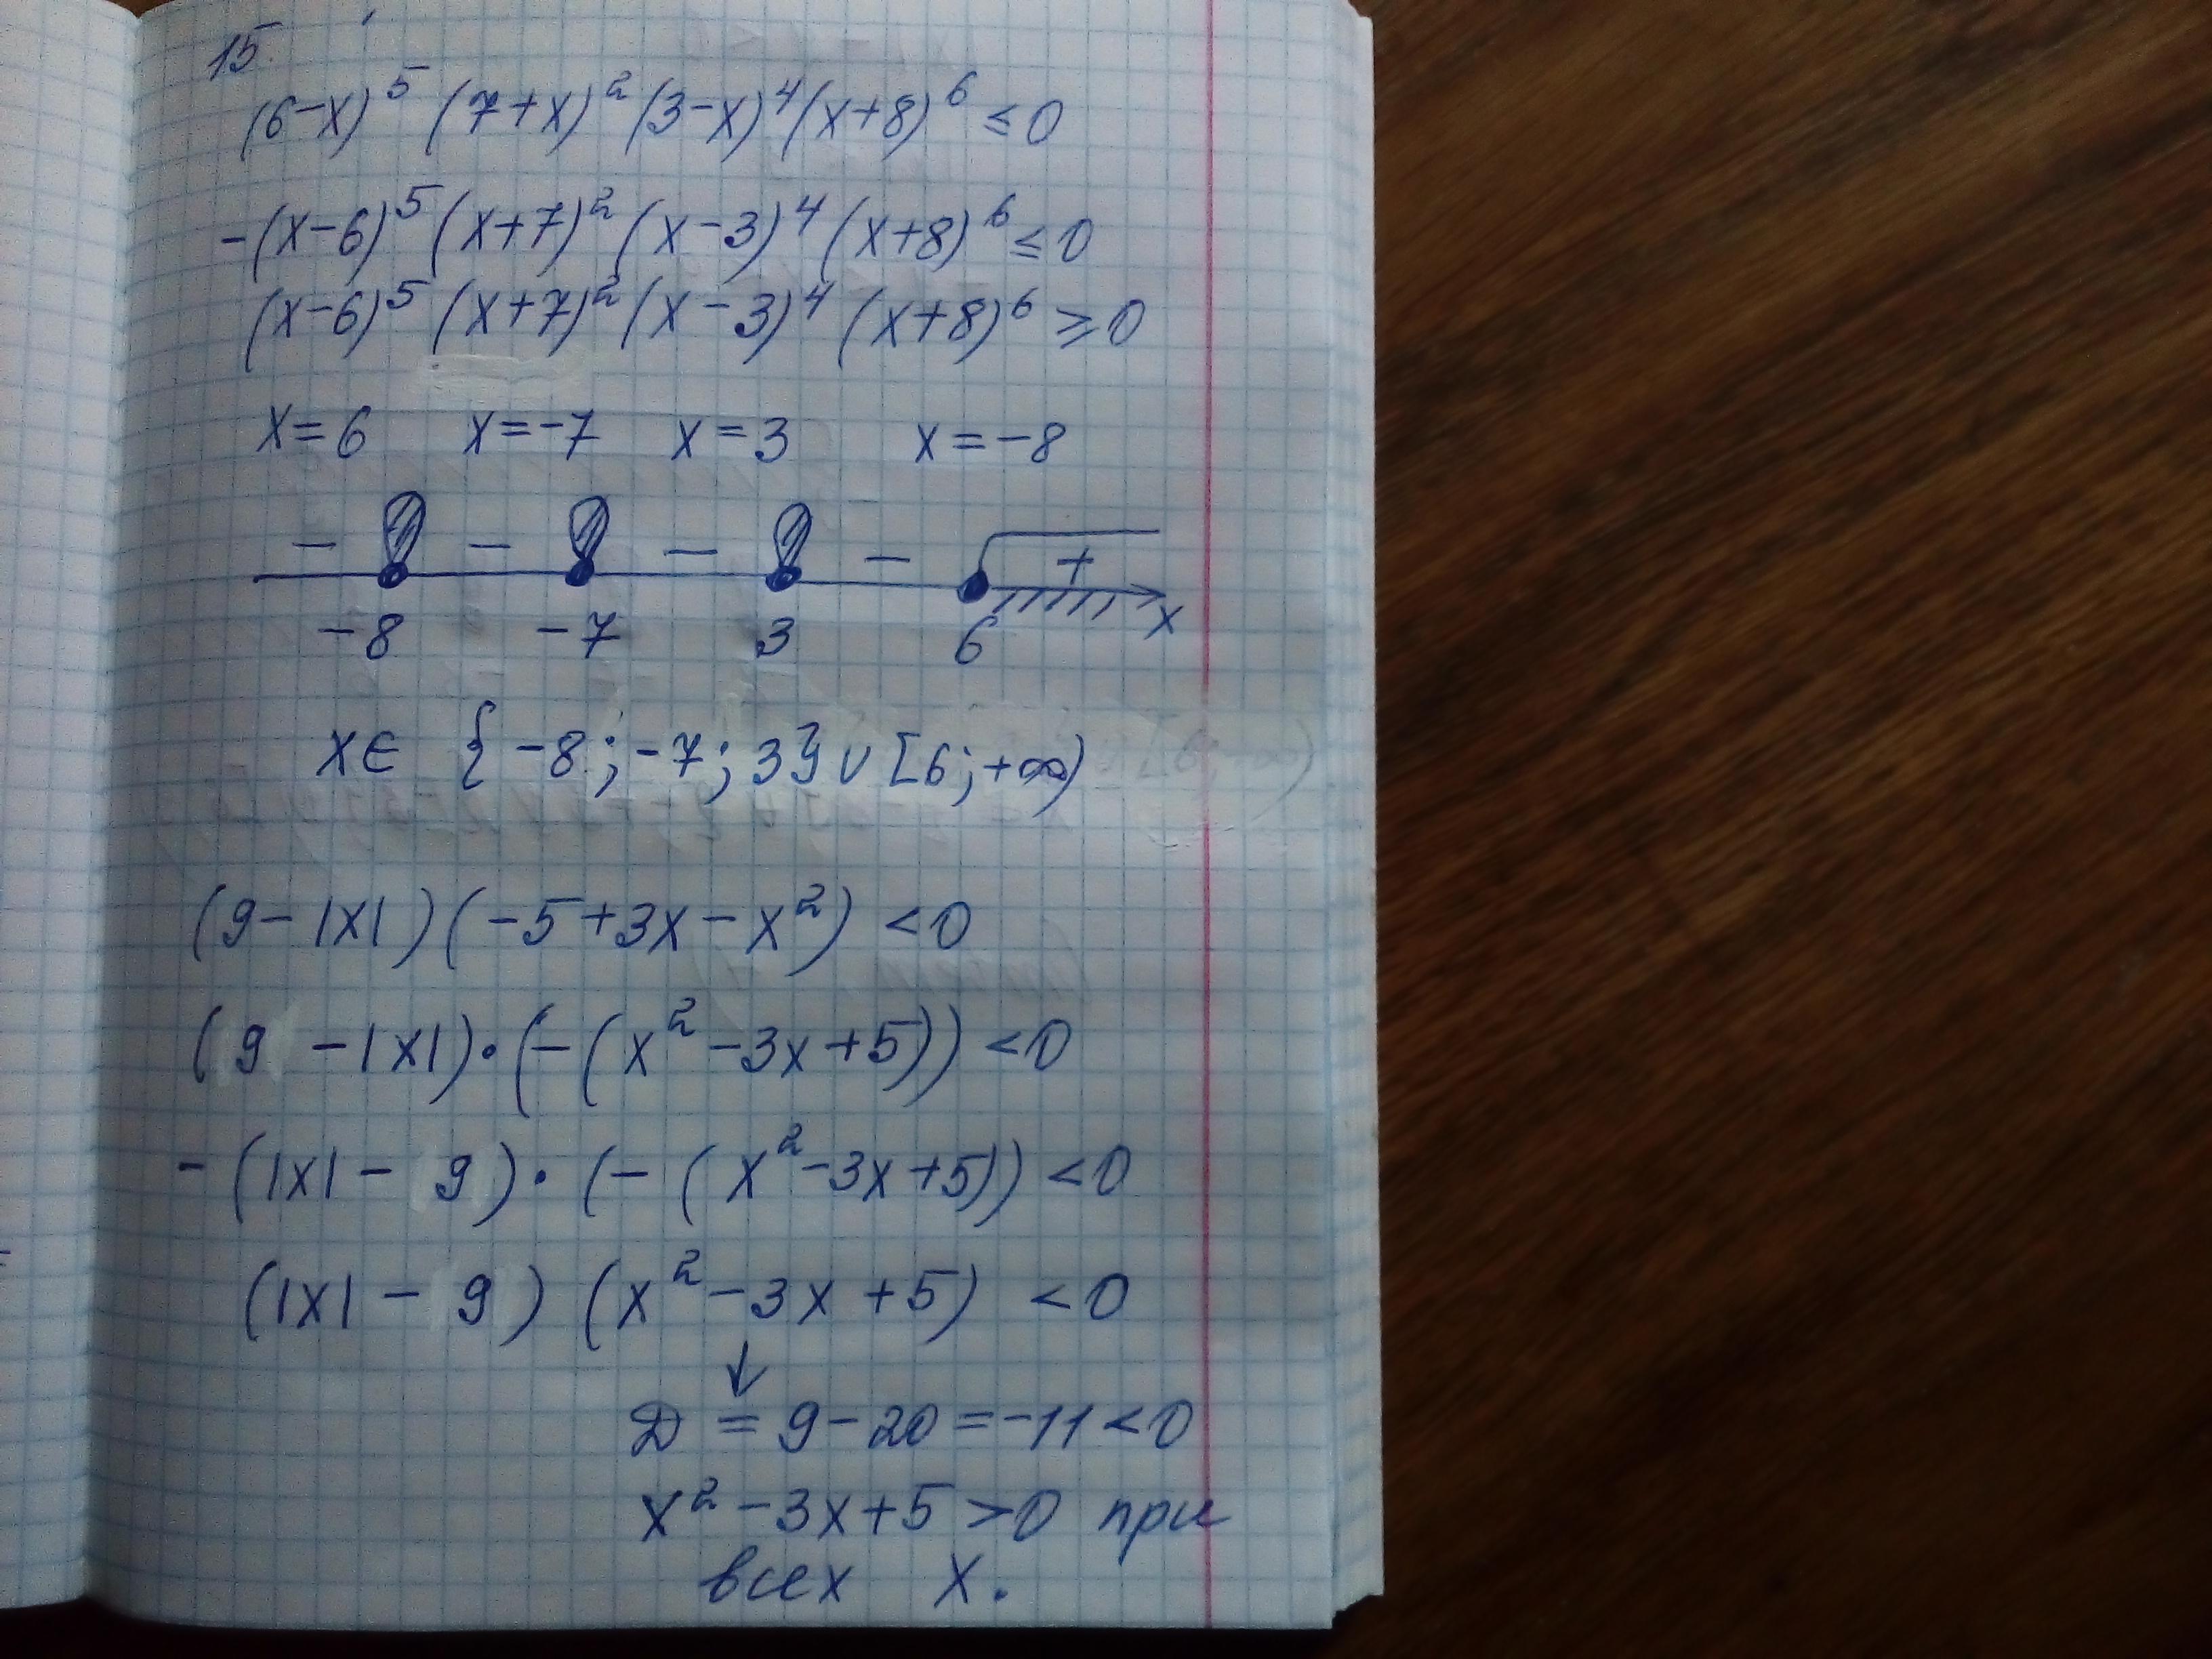 15.
(6-x)⁵ (7+x)² (3-x)⁴ (x+8)⁶ ≤ 0
-(x-6)⁵ (x+7)² (x-3)⁴ (x+8)⁶ ≤ 0
(x-6)⁵ (x+7)² (x-3)⁴ (x+8)⁶ ≥ 0
x=6 x=-7 x=3 x=-8
- - - - +
-8 -7 3 6 x
x∈ {-8; -7; 3} ∪ [6; +∞)
(9-|x|)(-5+3x-x²) <0
(9 -|x|)·(-(x²-3x+5)) <0
-(|x|- 9)·(-(x²-3x+5)) <0
(|x|- 9) (x²-3x+5) <0
↓
D = 9-20 = -11 <0
x²-3x+5 >0 при
всех x.